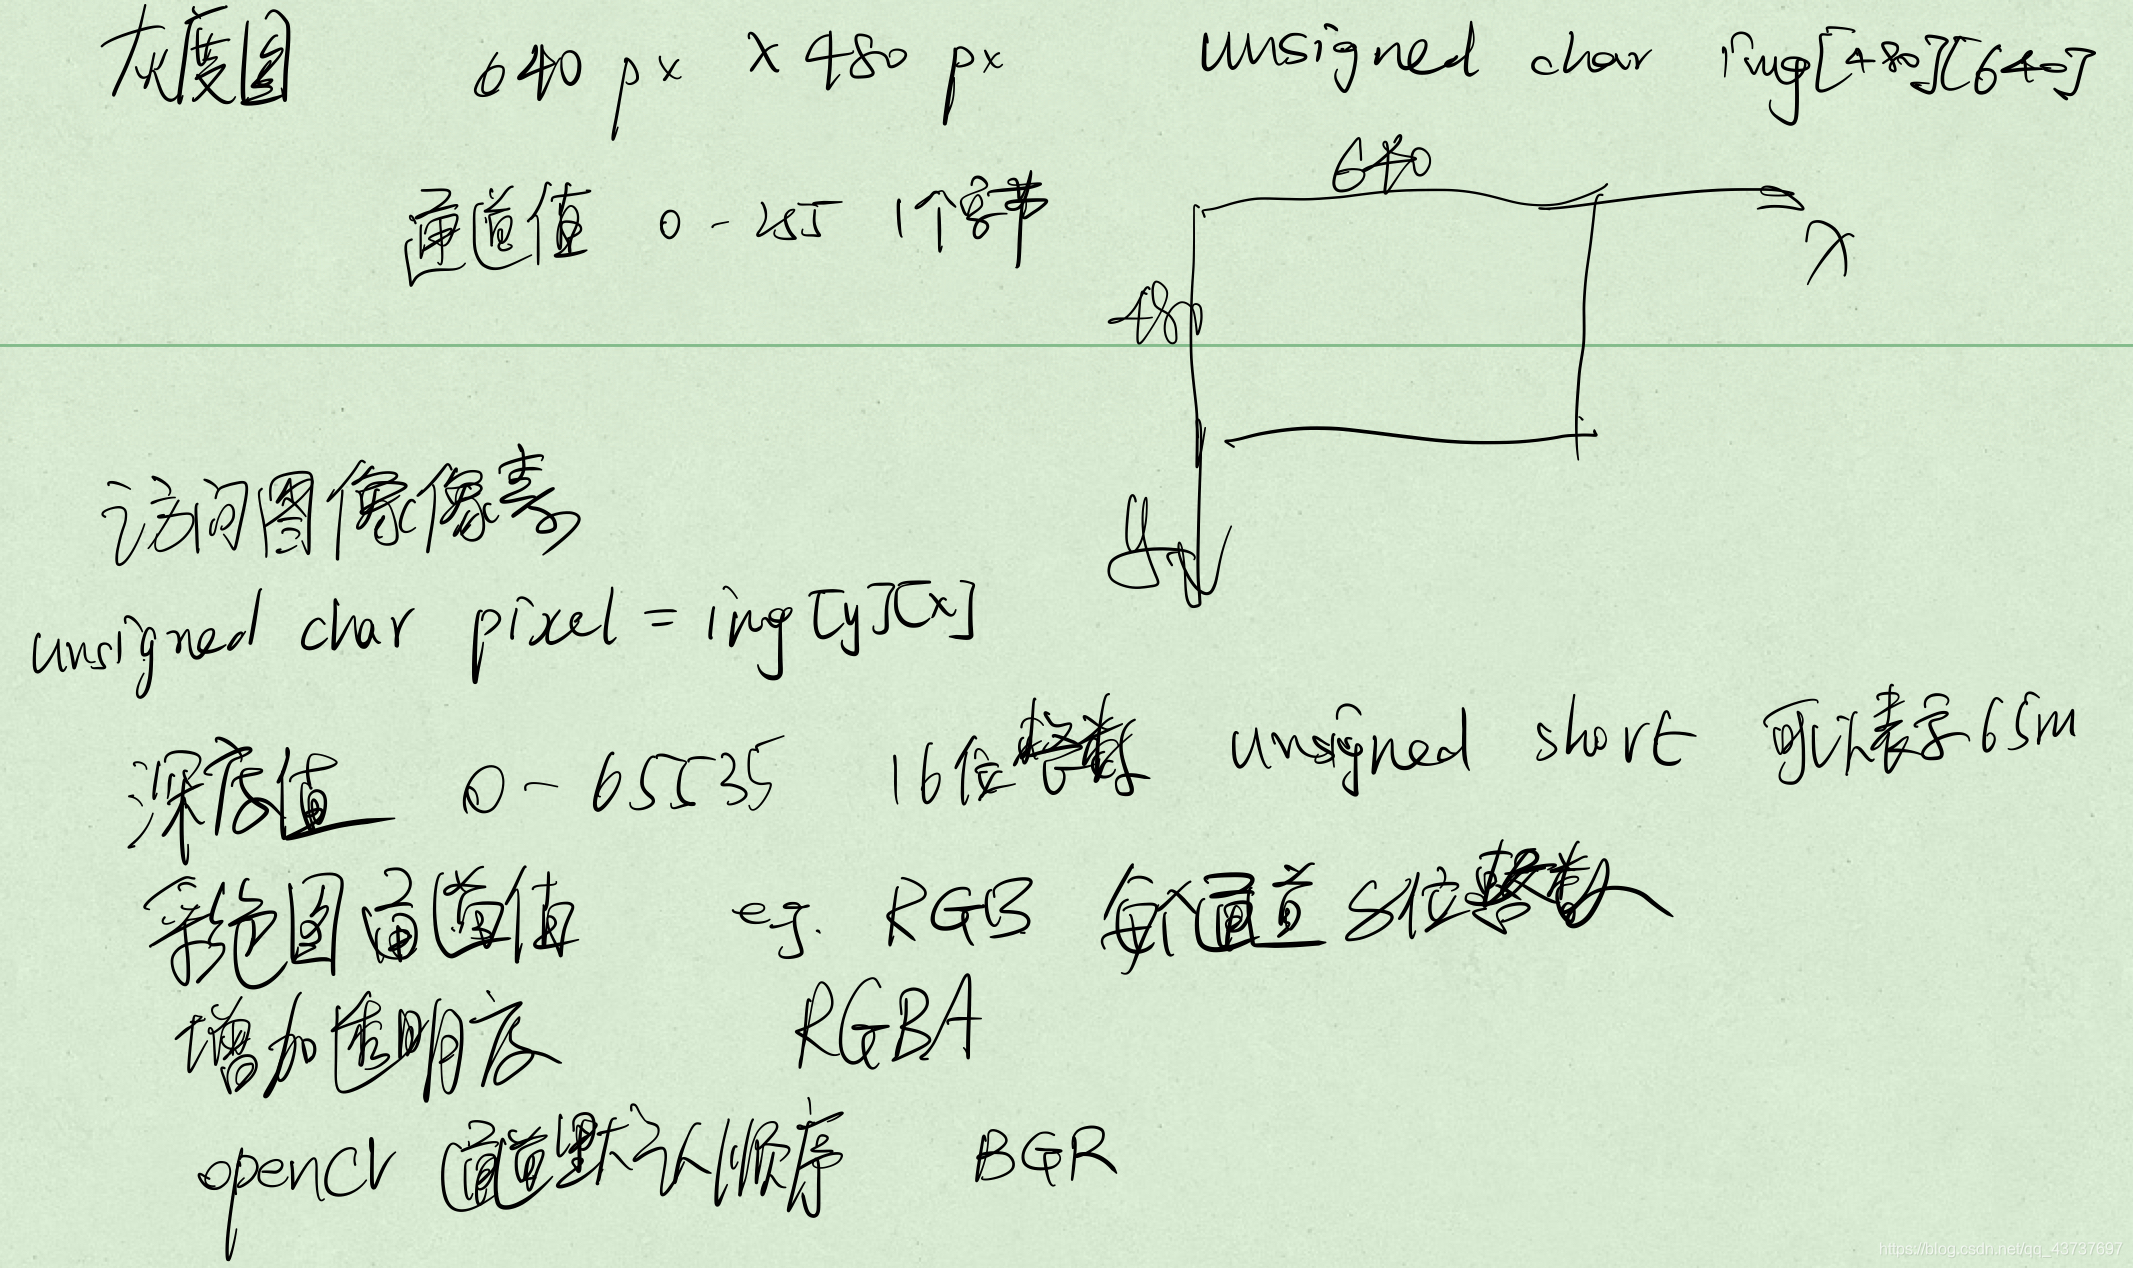 灰度图 640 px x 480 px unsigned char img[480][640]
通道值 0 - 255 1个字节
640
x
480
y
访问图像像素
unsigned char pixel = img[y][x]
深度值 0 - 65535 16位整数 unsigned short 可以表示65m
彩色图通道值 eg. RGB 每个通道 8位整数
增加透明度 RGBA
opencv 通道默认顺序 BGR
https://blog.csdn.net/qq_43737697